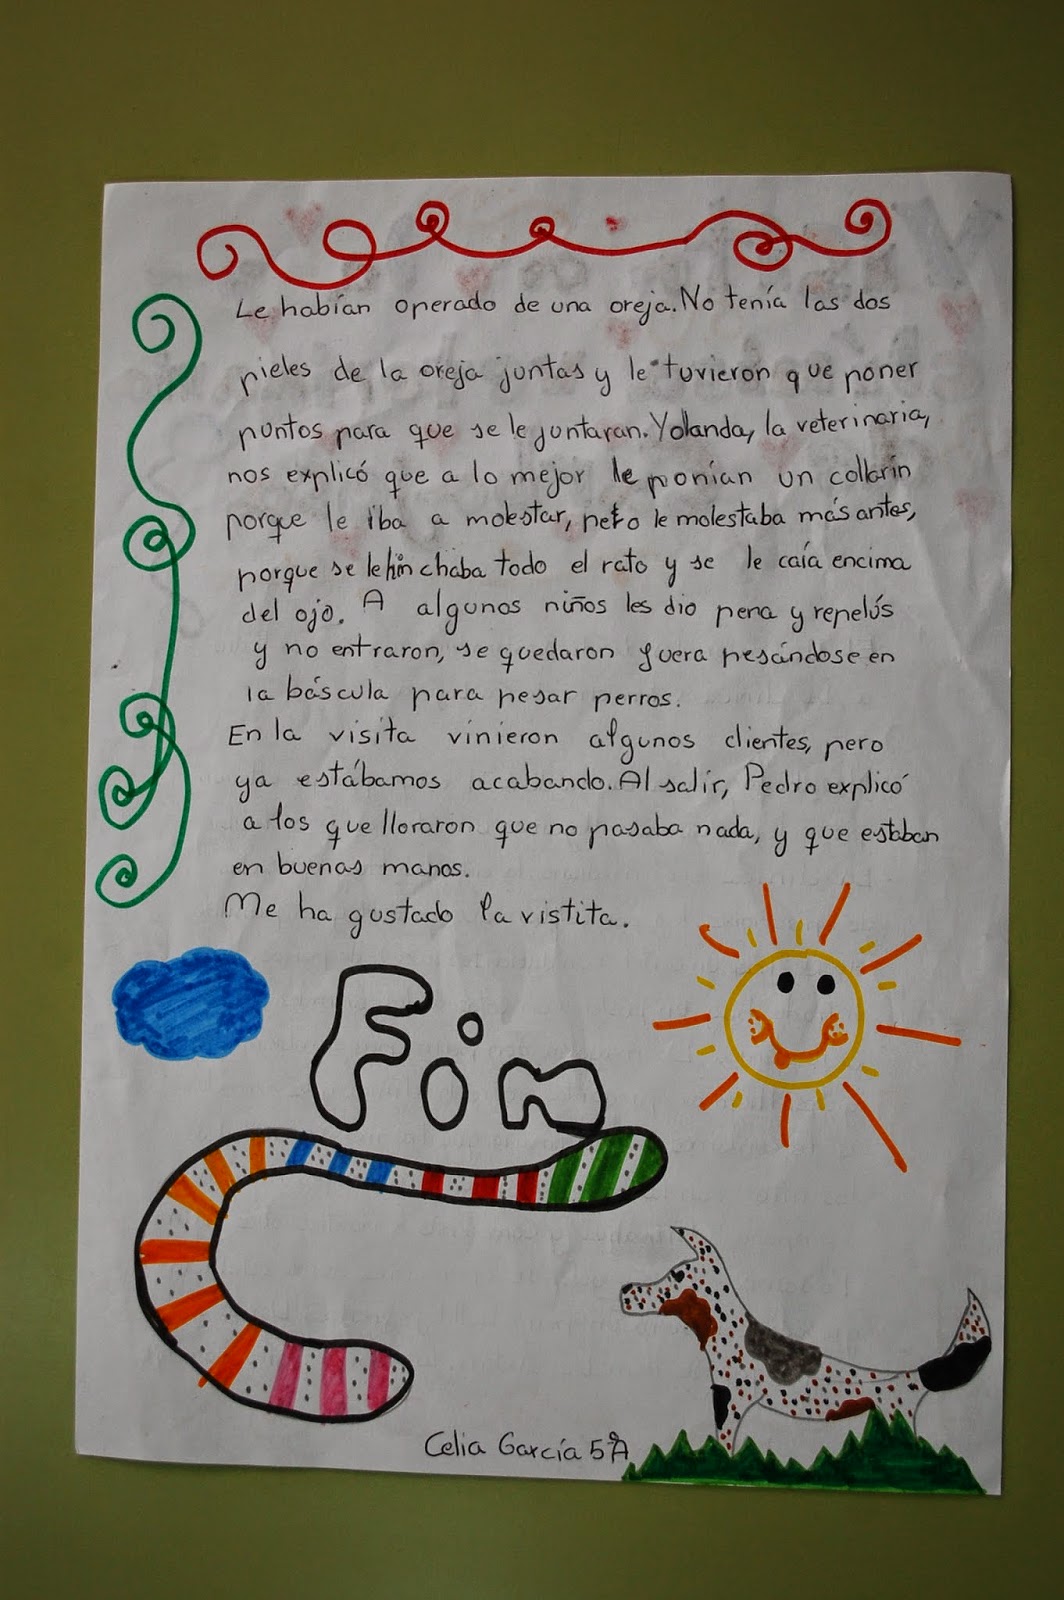 Le habían operado de una oreja. No tenía las dos
pieles de la oreja juntas y le tuvieron que poner
puntos para que se le juntaran. Yolanda, la veterinaria,
nos explicó que a lo mejor le ponían un collarín
porque le iba a molestar, pero le molestaba más antes,
porque se le hinchaba todo el rato y se le caía encima
del ojo. A algunos niños les dio pena y repelús
y no entraron, se quedaron fuera pesándose en
la báscula para pesar perros.
En la visita vinieron algunos clientes, pero
ya estábamos acabando. Al salir, Pedro explicó
a los que lloraron que no pasaba nada, y que estaban
en buenas manos.
Me ha gustado la vistita.
Fin
Celia García 5ºA